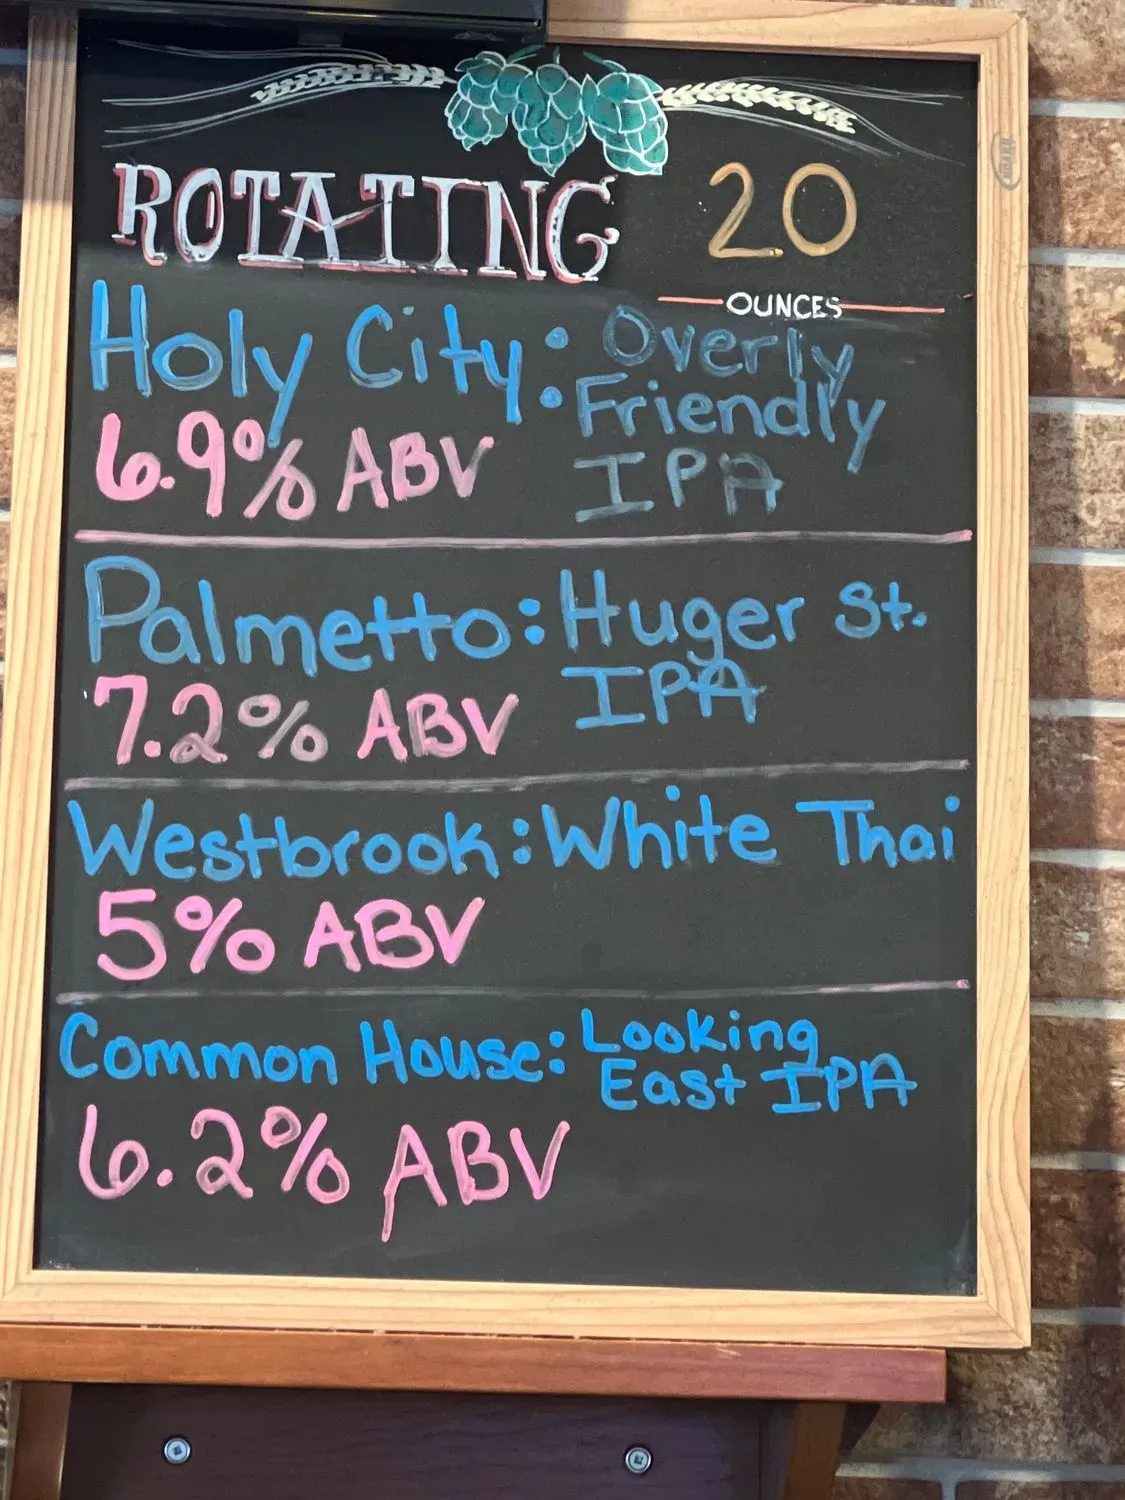 ROTATING
20
OUNCES
Holy City: Overly
Friendly
IPA
6.9% ABV
Palmetto: Huger St.
IPA
7.2% ABV
Westbrook: White Thai
5% ABV
Common House: Looking
East IPA
6.2% ABV